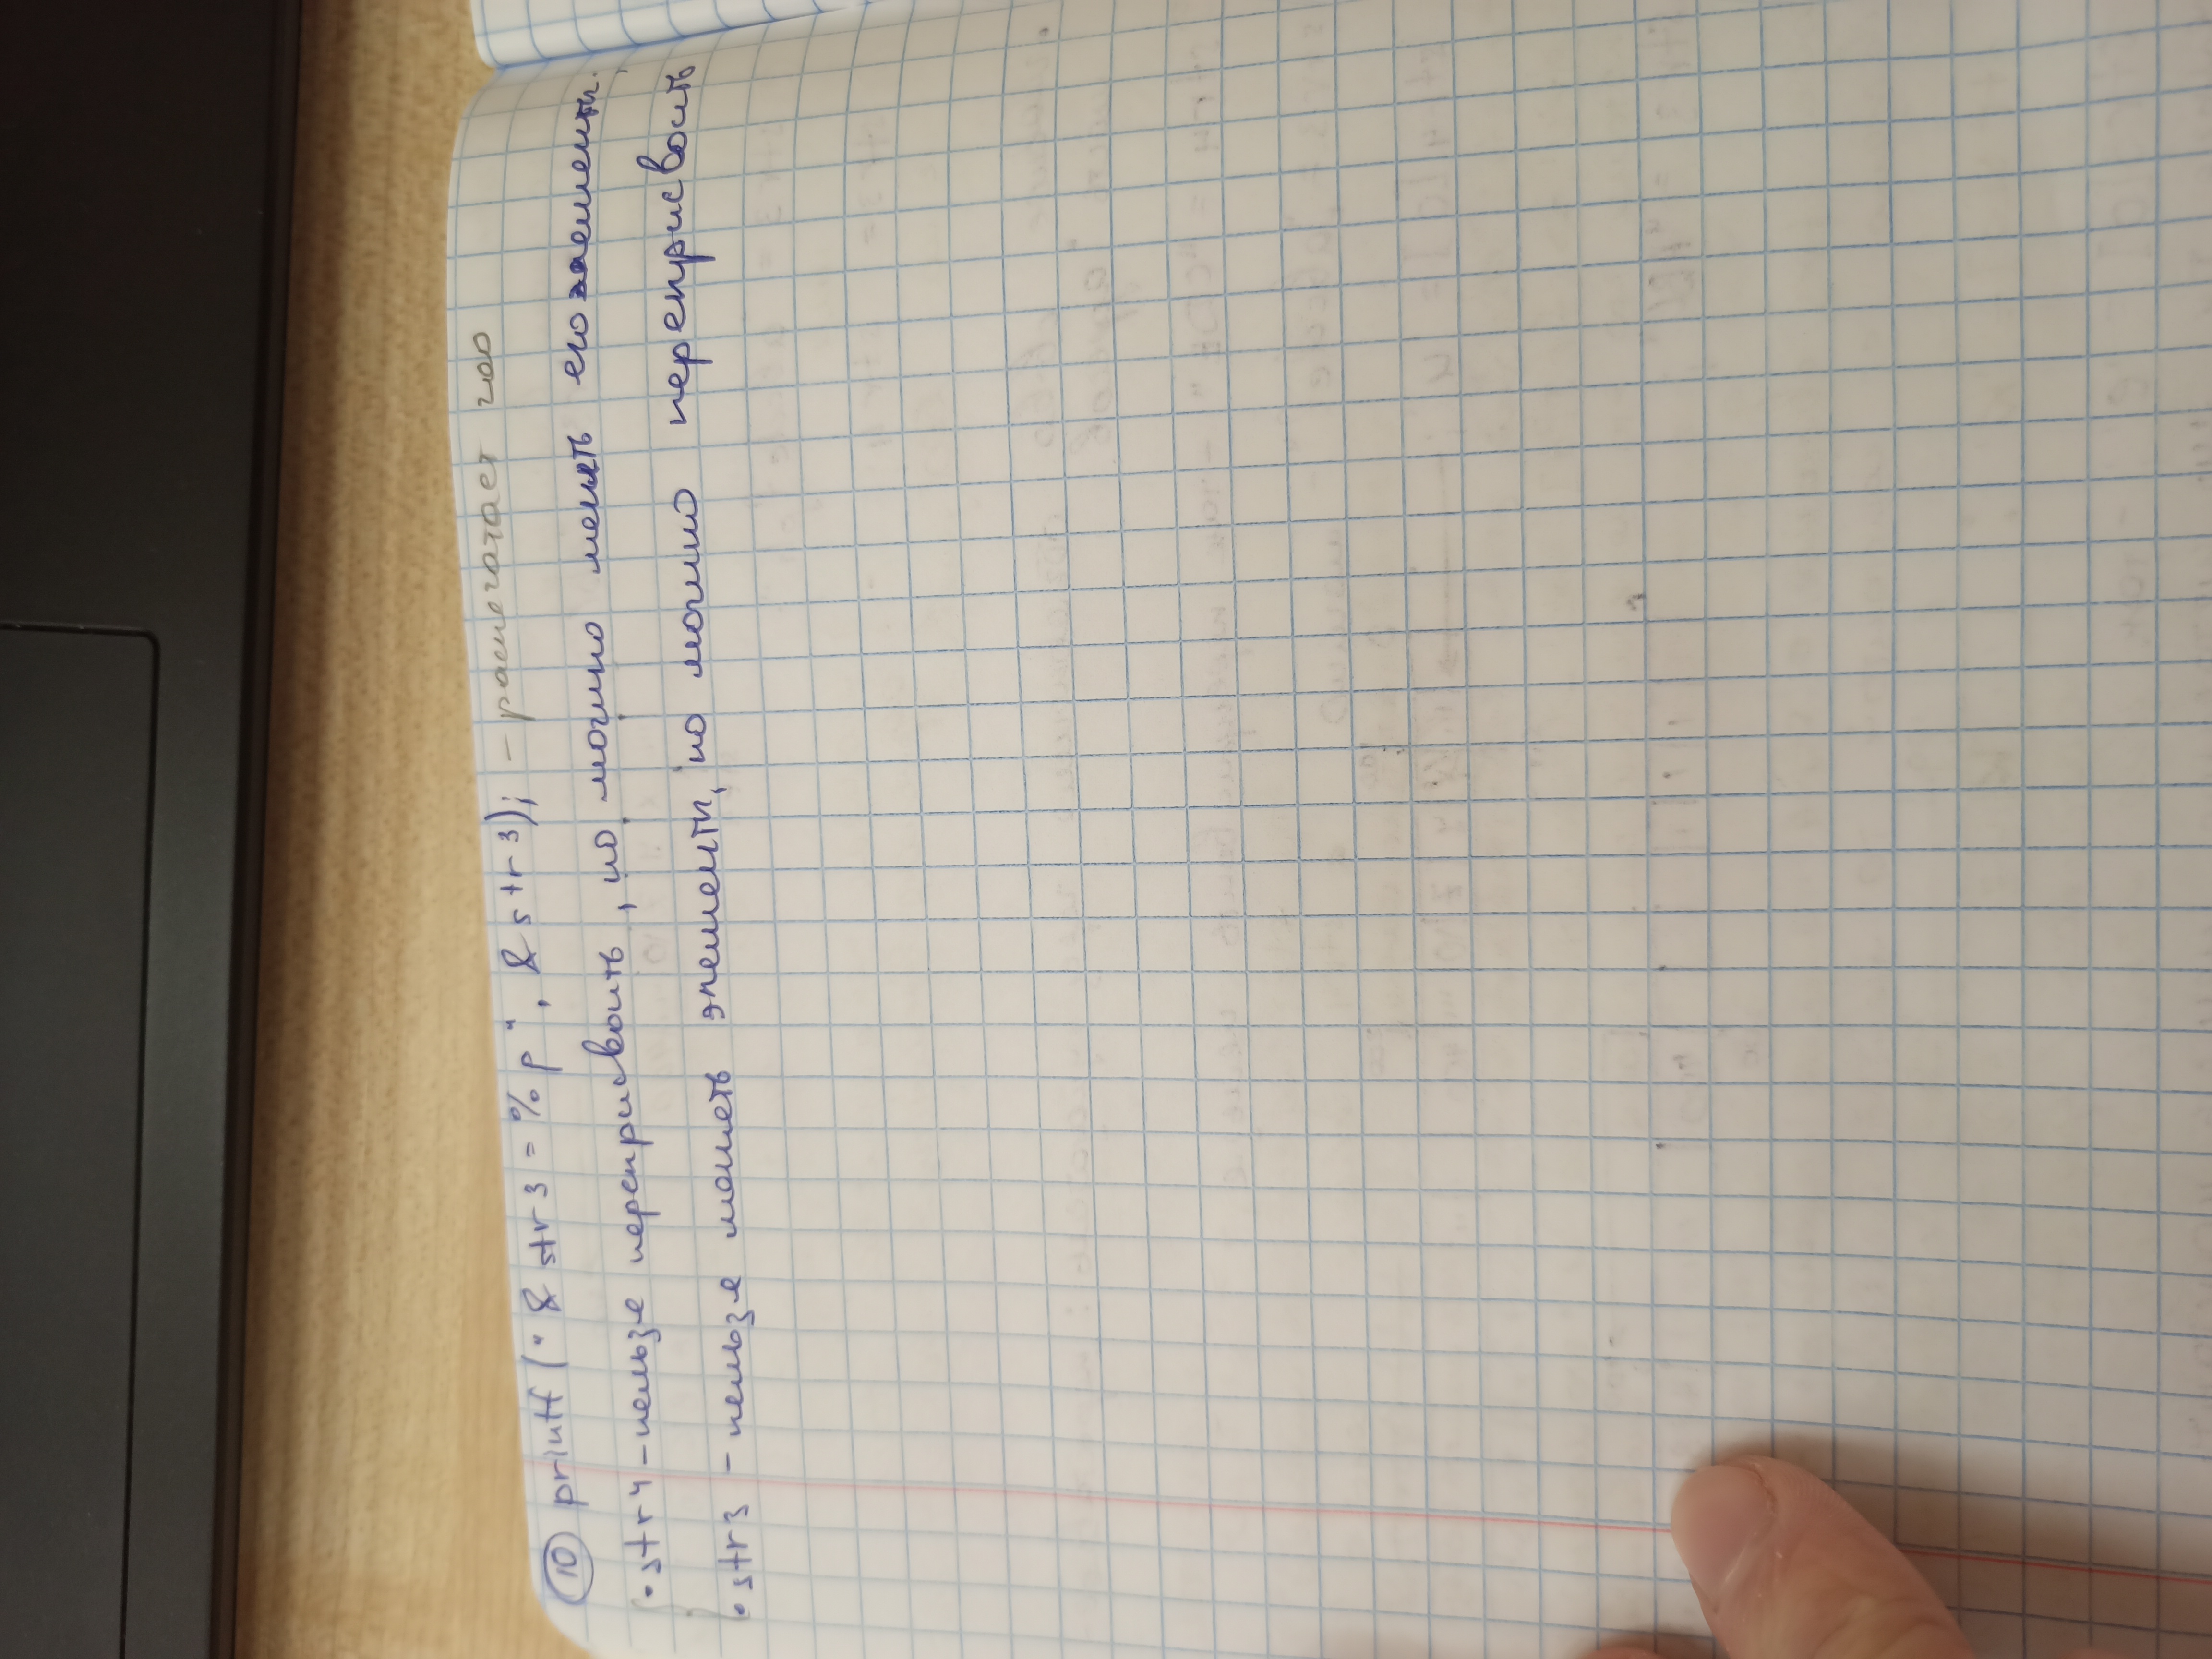 10 printf("&str3=%p", &str3); - распечатает 200
• str4 - нельзя переприсвоить, но можно менять его элементы;
• str3 - нельзя менять элементы, но можно переприсвоить